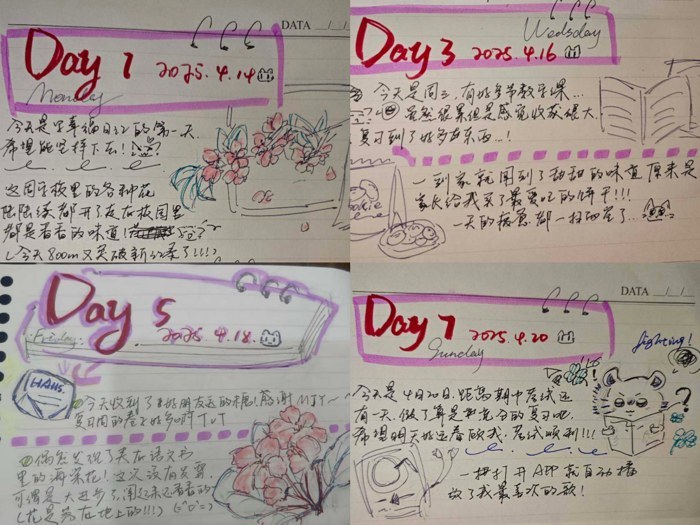 DATA / /
Day 1 2025.4.14
Monday
今天是坚幸福日记的第一天
希望能坚持下去!
这周学校里的各种花
陆陆续续都开了走在校园里
都是香香的味道!
(今天800m又突破新纪录了!!!)
Wedsday
Day 3 2025.4.16
今天是周三,有好多节数学课...
虽然很累但是感觉收获很大
复习到了好多东西...!
一到家就闻到了甜甜的味道原来是
家长给我买了最爱吃的饼干!!!
一天的疲惫都一扫而空了...
Cookie
Day 5 2025.4.18.
Friday.
HAHS.
今天收到了来好朋友送的糖!感谢MJY~
复习周的卷子好多啊TvT
偶然发现了夹在语文书
里的海棠花!这次没有发霉,
可谓是大进步了,闻起来还香香的
(花是落在地上的!!!)
DATA / /
Day 7 2025.4.20
Sunday
fighting!
今天是4月20日.距离期中考试还
有一天.做了算是充分的复习吧.
希望明天好运眷顾我,考试顺利!!!
一打开APP就自动播
放了我最喜欢的歌!